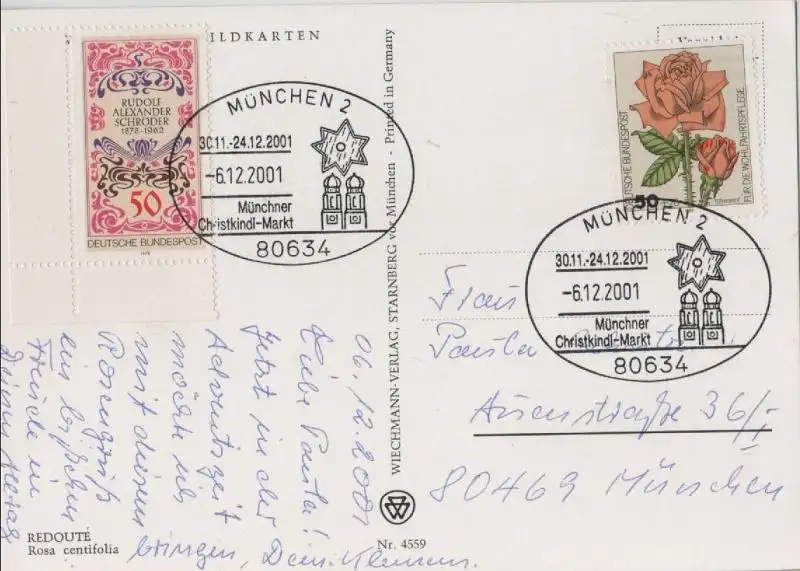 ILDKARTEN
RUDOLF
ALEXANDER
SCHRÖDER
1878-1962
50
DEUTSCHE BUNDESPOST
MÜNCHEN 2
30.11.-24.12.2001
-6.12.2001
Münchner
Christkindl-Markt
80634
DEUTSCHE BUNDESPOST
FÜR DIE WOHLFAHRTSPFLEGE
50
MÜNCHEN 2
30.11.-24.12.2001
-6.12.2001
Münchner
Christkindl-Markt
80634
WIECHMANN-VERLAG, STARNBERG vor München · Printed in Germany
Nr. 4559
06.12.2001
Liebe Paula!
Jetzt in der
Adventszeit
möchte ich
mit diesem
Rosengruß
ein bißchen
Freude in
Deinen Alltag
bringen, Dein Klemens.
REDOUTÉ
Rosa centifolia
Frau
Paula
36/I
80469 München